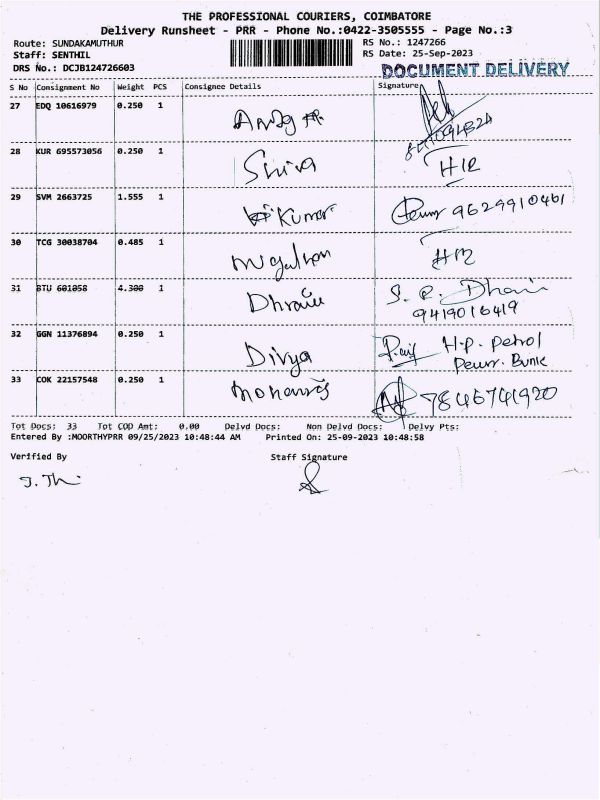 THE PROFESSIONAL COURIERS, COIMBATORE
Delivery Runsheet - PRR - Phone No.:0422-3505555 - Page No.:3
Route: SUNDAKAMUTHUR RS No.: 1247266
Staff: SENTHIL RS Date: 25-Sep-2023
DRS No.: DCJB124726603 DOCUMENT DELIVERY
S No Consignment No Weight PCS Consignee Details Signature
27 EDQ 10616979 0.250 1
28 KUR 695573056 0.250 1 Shiva
29 SVM 2663725 1.555 1 Kumar 9629910461
30 TCG 30038704 0.485 1
31 BTU 601058 4.300 1 S. R. Dhani
9419016419
32 GGN 11376894 0.250 1 Divya H.P. Petrol
Bunk
33 COK 22157548 0.250 1 7846741920
Tot Docs: 33 Tot COD Amt: 0.00 Delvd Docs: Non Delvd Docs: Delvy Pts:
Entered By :MOORTHYPRR 09/25/2023 10:48:44 AM Printed On: 25-09-2023 10:48:58
Verified By Staff Signature